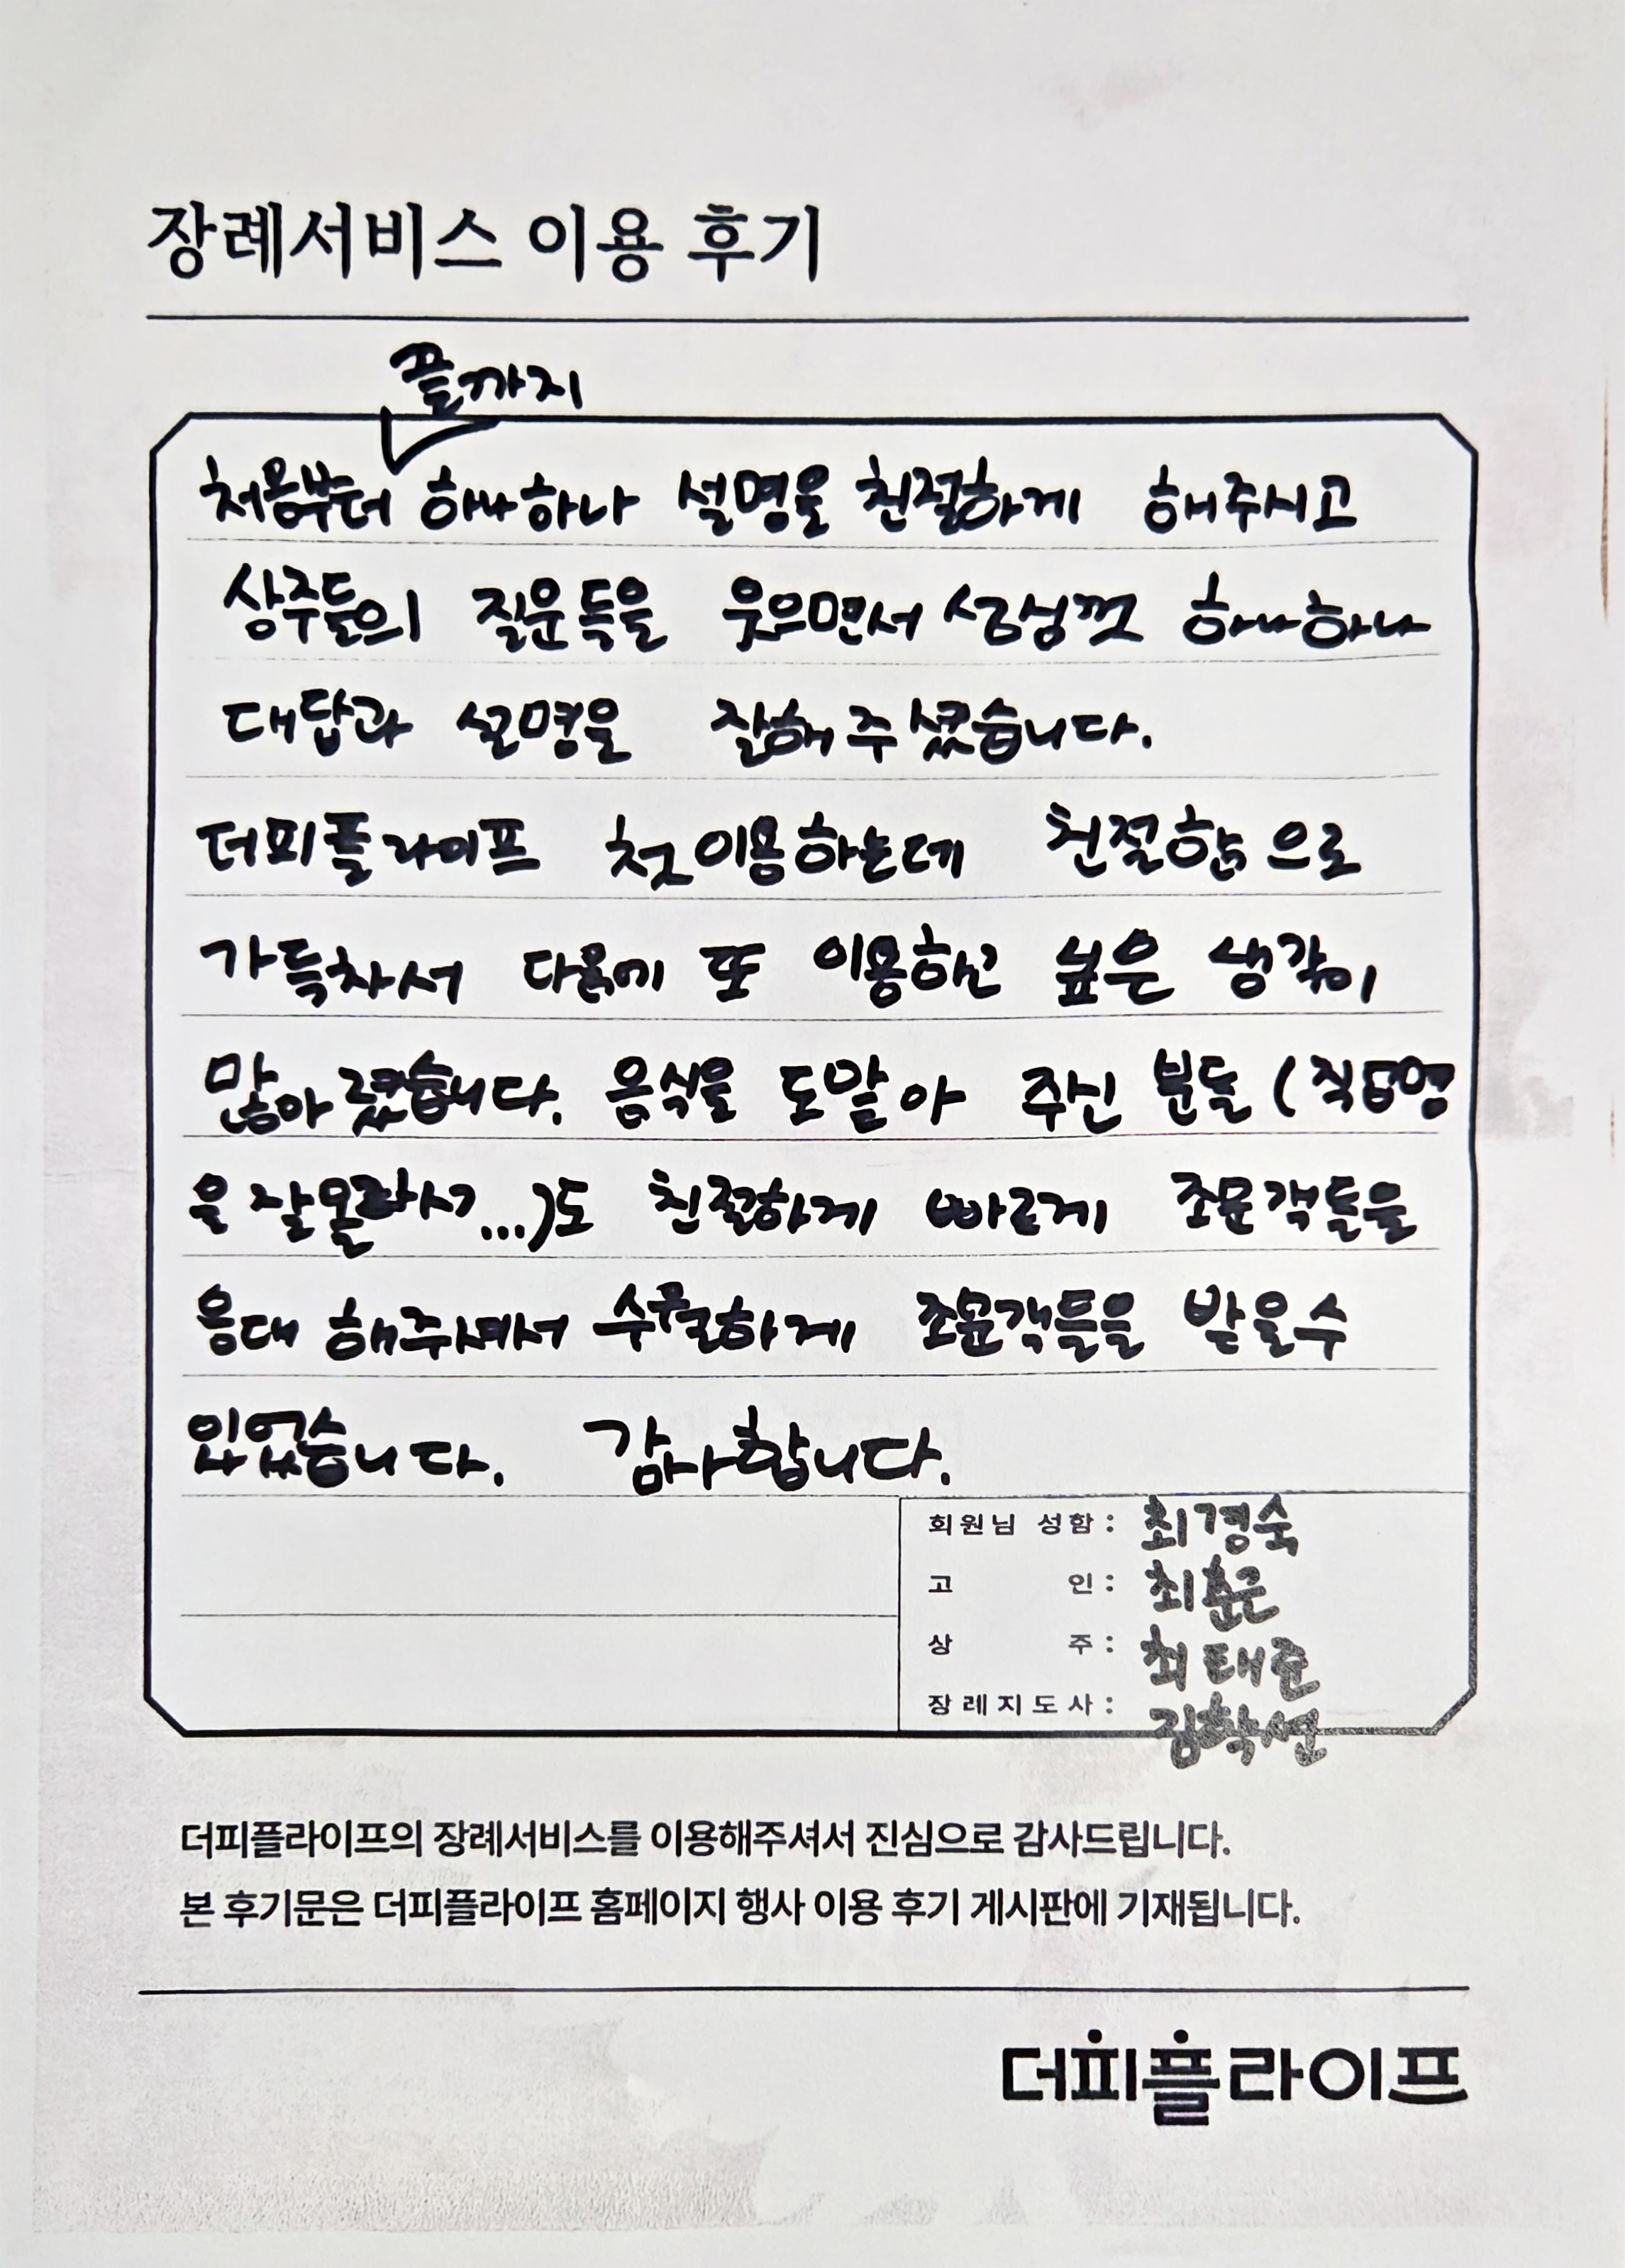 장례서비스 이용 후기
끝까지
처음부터 하나하나 설명을 친절하게 해주시고
상주들의 질문들을 웃으면서 성심껏 하나하나
대답과 설명을 잘해 주셨습니다.
더피플라이프 첫이용하는데 친절함으로
가득차서 다음에 또 이용하고 싶은 생각이
많아졌습니다. 음식을 도맡아 주신 분들 (직업명
을 잘몰라서...)도 친절하게 빠르게 조문객들을
응대 해주셔서 수월하게 조문객들을 받을수
있었습니다. 감사합니다.
회원님 성함: 최경숙
고 인: 최춘근
상 주: 최태준
장례지도사:
더피플라이프의 장례서비스를 이용해주셔서 진심으로 감사드립니다.
본 후기문은 더피플라이프 홈페이지 행사 이용 후기 게시판에 기재됩니다.
더피플라이프